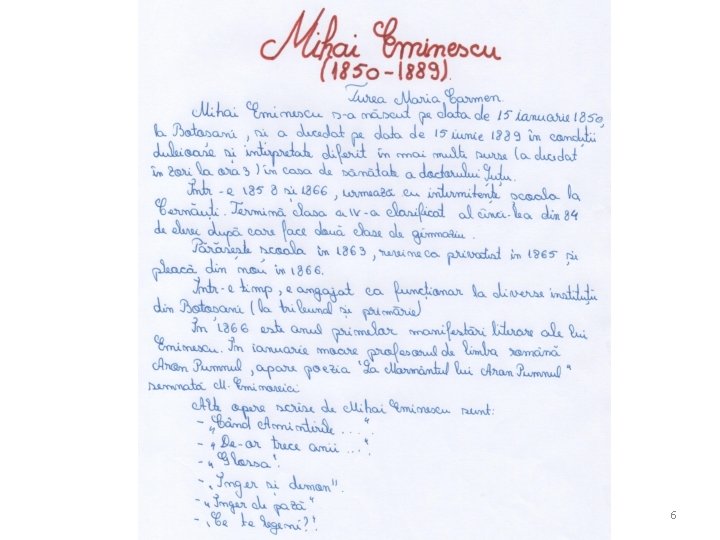 Mihai Eminescu
(1850-1889).
Turea Maria Carmen.
Mihai Eminescu s-a născut pe data de 15 ianuarie 1850,
la Botoșani, și a decedat pe data de 15 iunie 1889 în condiții
duleioase și intirpretate diferit în mai multe surse (a decedat
în zori la ora 3) în casa de sănătate a doctorului Șuțu.
Într-e 1858 și 1866, urmează cu intermitențe școala la
Cernăuți. Termină clasa a IV-a clasificat al cinci-lea din 84
de elevi după care face două clase de gimnaziu.
Părăsește școala în 1863, revine ca privatist în 1865 și
pleacă din nou în 1866.
Într-e timp, e angajat ca funcționar la diverse instituții
din Botoșani (la tribunal și primărie)
În 1866 este anul primelor manifestări literare ale lui
Eminescu. În ianuarie moare profesorul de limba română
Aron Pumnul, apare poezia "La Mormântul lui Aron Pumnul"
semnată M. Eminoveici
Alte opere scrise de Mihai Eminescu sunt:
- „Când Amintirile ....".
- „De-or trece anii ...".
- „Glossa".
- „Înger și demon".
- „Înger de pază"
- „Ce te legeni?".
6